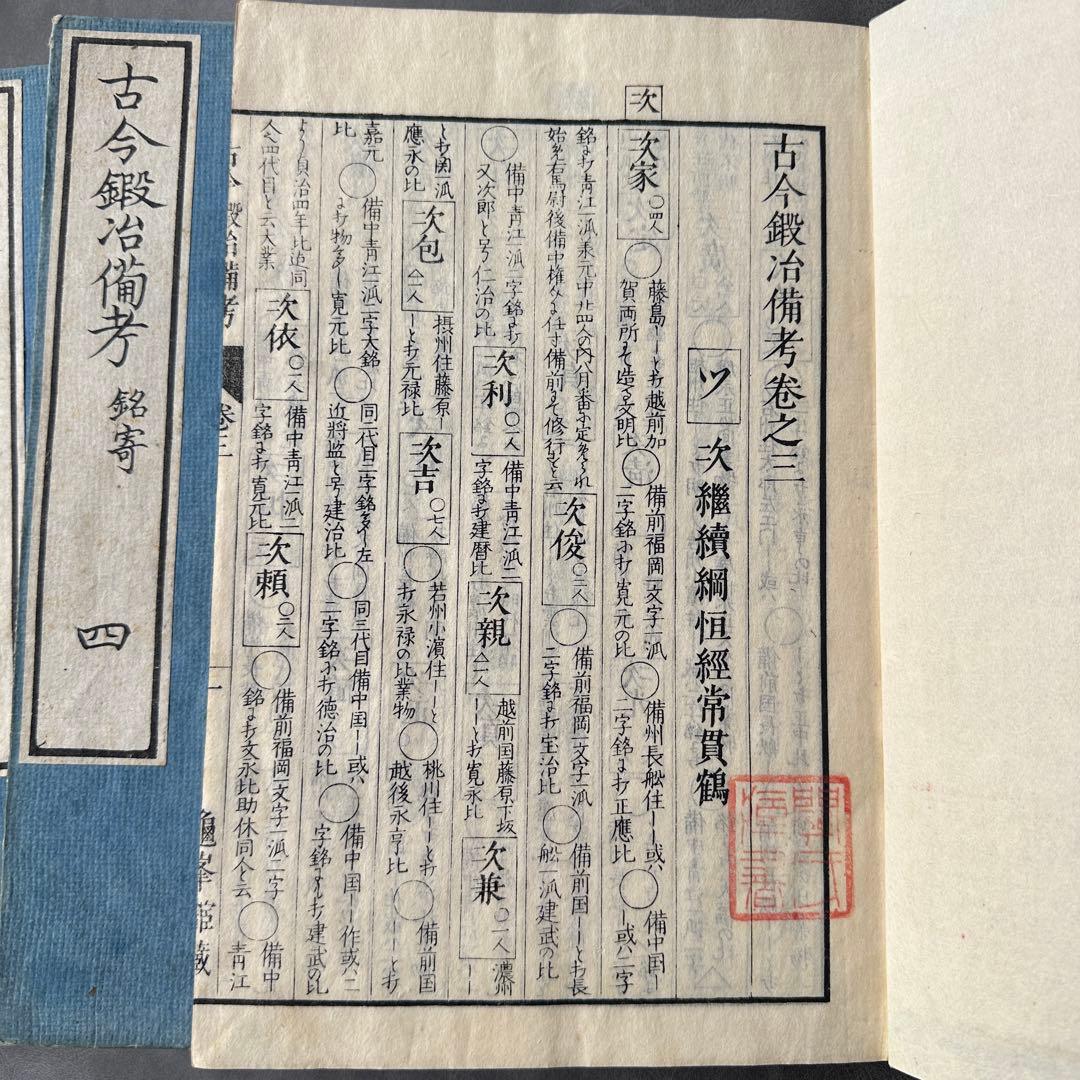 古今鍛冶備考 銘寄 四
次
古今鍛冶備考卷之三
ツ 次繼續綱恒經常貫鶴
次家 〇四人 〇藤島ーとオ越前加
賀両所にて造る文明比〇備前福岡一文字一派
二字銘にオ寛元の比〇備州長舩住ーー或ハ
二字銘にオ正應比〇備中国ー
ー或ハ二字
銘にオ青江一派承元中廿四人の内八月番に定められ
始め右馬尉後備中権介に任す備前にて修行すと云
次俊 〇二人 〇備前福岡一文字一派
二字銘にオ宝治比〇備前国ーーとオ長
舩一派建武の比
〇備中青江一派二字銘にオ
又次郎と号仁治の比
次利 〇一人 備中青江一派二
字銘にオ建暦比
次親 △一人 越前国藤原下坂
ーーとオ寛永比
次兼 〇一人 濃州
ーー
とオ関一派
應永の比
次包 △一人 摂州住藤原ー
ーとオ元禄比
次吉 〇七人 〇若州小濱住ーーと
オ永禄の比業物〇桃川住ーーとオ
越後永亨比〇備前国
ーーとオ
嘉元比〇備中青江一派二字大銘
にオ物多し寛元比〇同二代目二字銘多し左
近將監と号建治比〇同三代目備中国ー或ハ
二字銘にオ徳治の比〇備中国ーー作或ハ二
字銘にもオ建武の比
より貞治四年比迄同
人四代目と云大業
次依 〇一人 備中青江一派二
字銘にオ寛元比
次頼 〇三人 〇備前福岡一文字一派二字
銘にオ文永比助休同人と云〇備中
青江
古今鍛冶備考 卷三 一